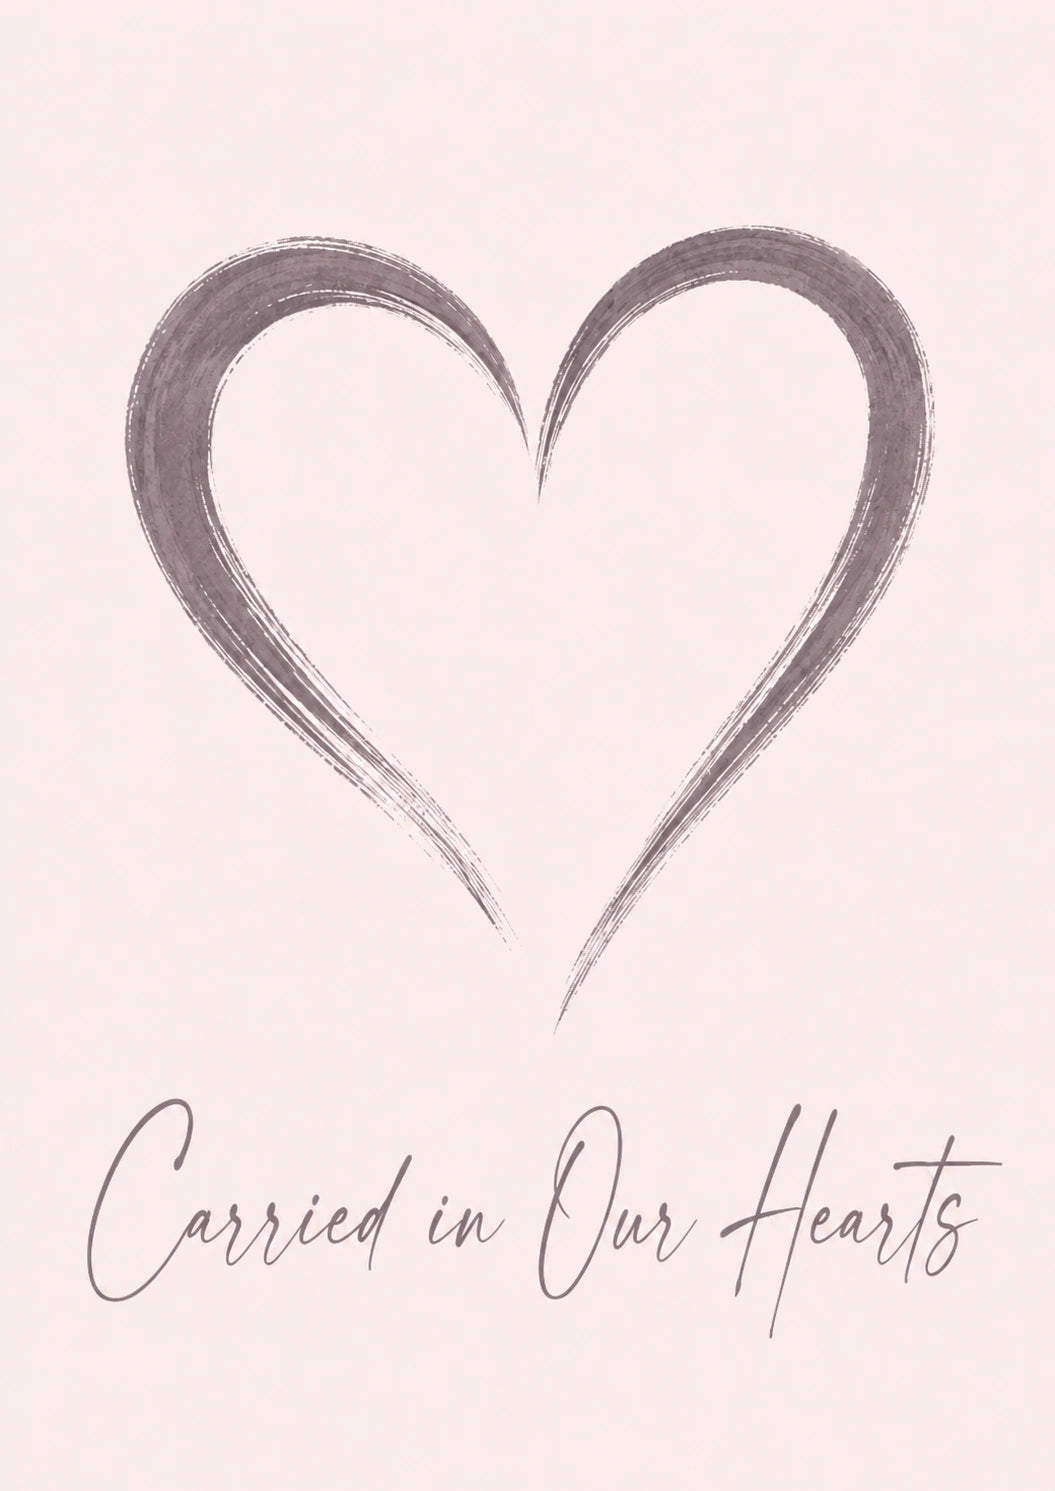 Carried in Our Hearts